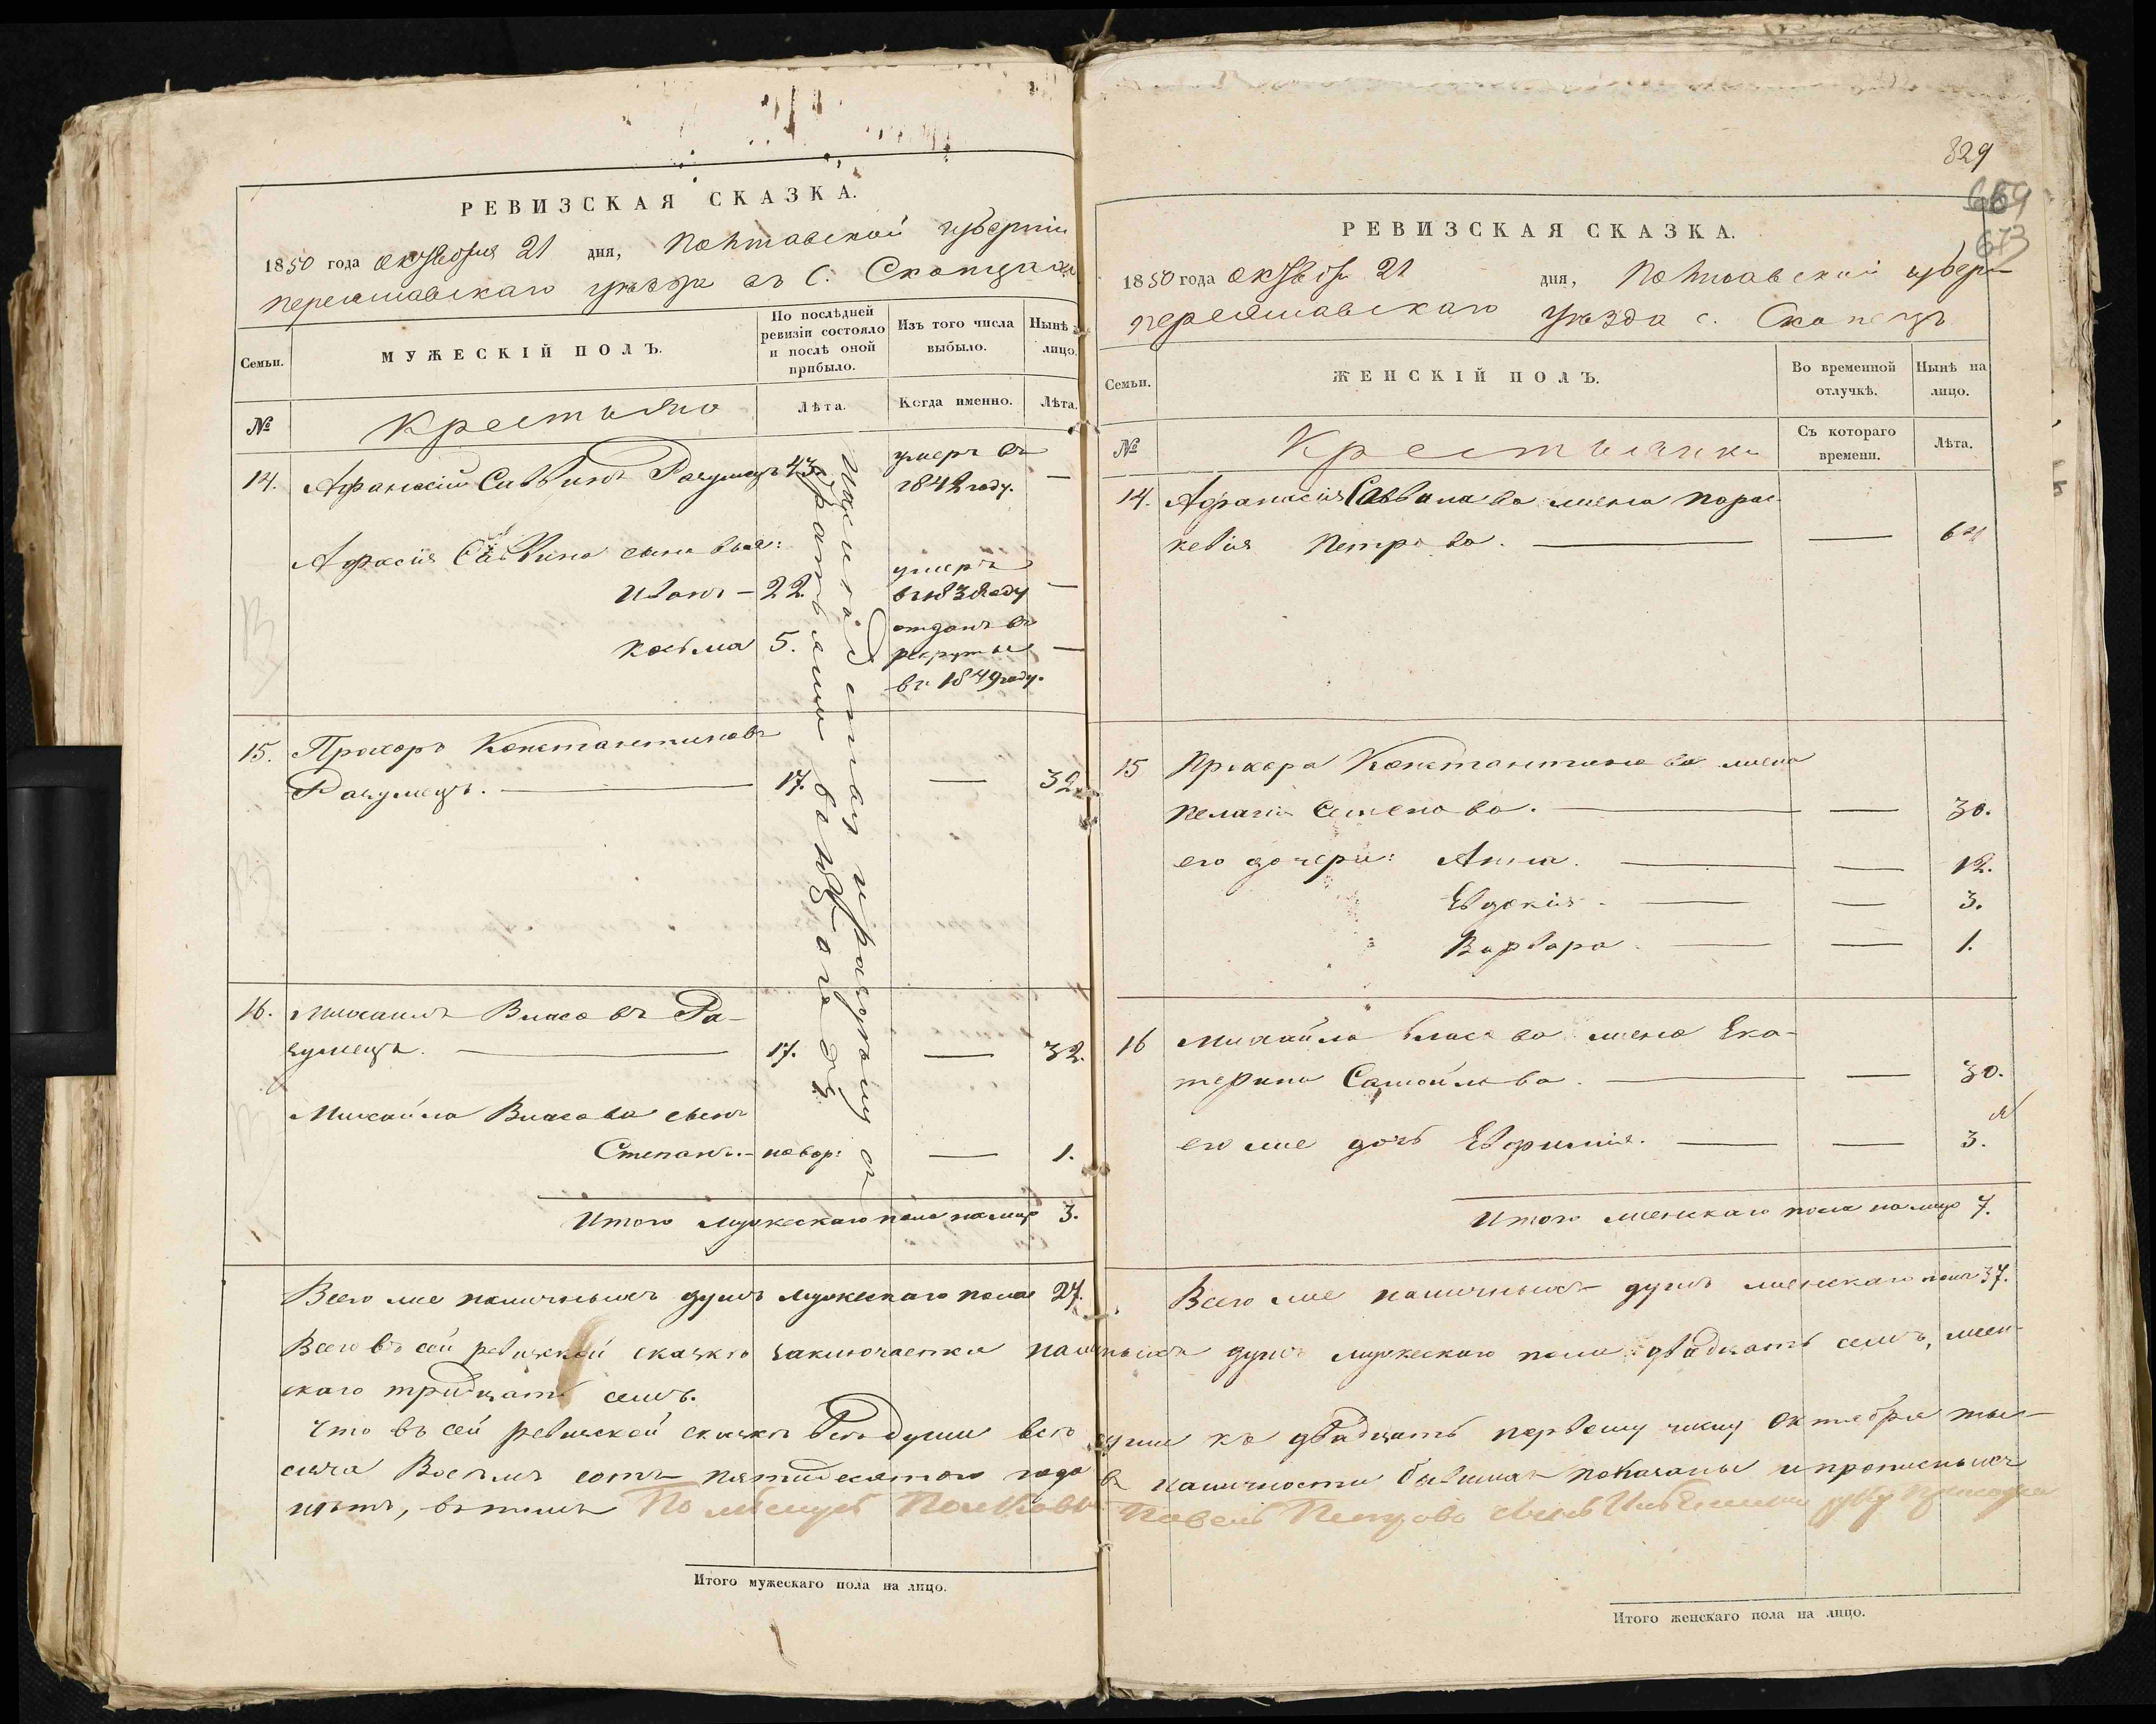 РЕВИЗСКАЯ СКАЗКА.
1850 года октября 21 дня, Полтавской губернии
переяславскаго уезда въ с. Скопцахъ
Семьи.
МУЖЕСКІЙ ПОЛЪ.
По послѣдней ревизіи состояло и послѣ оной прибыло.
Изъ того числа выбыло.
Нынѣ на лицо.
№
Крестьяно
Лѣта.
Когда именно.
Лѣта.
14. Афанасій Саввинъ Разумецъ 43. умеръ въ 1842 году. —
Афасія Саввина сыновья:
Иванъ — 22. умеръ въ 1838 году —
Косьма 5. отданъ въ рекруты въ 1849 году. —
15. Прохоръ Константиновъ
Разумецъ. — 17. — 32.
16. Михаилъ Власовъ Ра-
зумецъ. — 17. — 32.
Михайла Власова сынъ
Степанъ. — новор: — 1.
Итого мужескаго пола налицо 3.
Всего же наличныхъ душъ мужескаго пола 27.
Итого мужескаго пола на лицо.
829
673
РЕВИЗСКАЯ СКАЗКА.
1850 года октября 21 дня, Полтавской губерн
переяславскаго уѣзда с. Скопецъ
Семьи.
ЖЕНСКІЙ ПОЛЪ.
Во временной отлучкѣ.
Нынѣ на лицо.
№
Крестьянки
Съ котораго времени.
Лѣта.
14. Афанасія Саввинава жена Парас-
кевія Петрова. — — 64
15 Прохора Константинова жена
Пелагія Семенова. — — 30.
его дочери: Анна. — — 12.
Евдокія. — — 3.
Варвара — — 1.
16 Михайла Власова жена Ека-
терина Самойлова. — — 30.
его же дочь Евфимія. — — 3.
Итого женскаго пола налицо 7.
Всего же наличныхъ душъ женскаго пола 37.
Всего въ сей ревизской сказкѣ заключается наличныхъ душъ мужескаго пола двадцать семь, жен-
скаго тридцать семь.
Что въ сей ревизской сказкѣ всѣ души всѣ къ двадцать первому числу Октября ты-
сяча Восемь сотъ пятидесятого года въ наличности бывшия показаны и прописныхъ
нѣтъ, въ томъ Павелъ Петрова сынъ руку приложилъ
Итого женскаго пола на лицо.